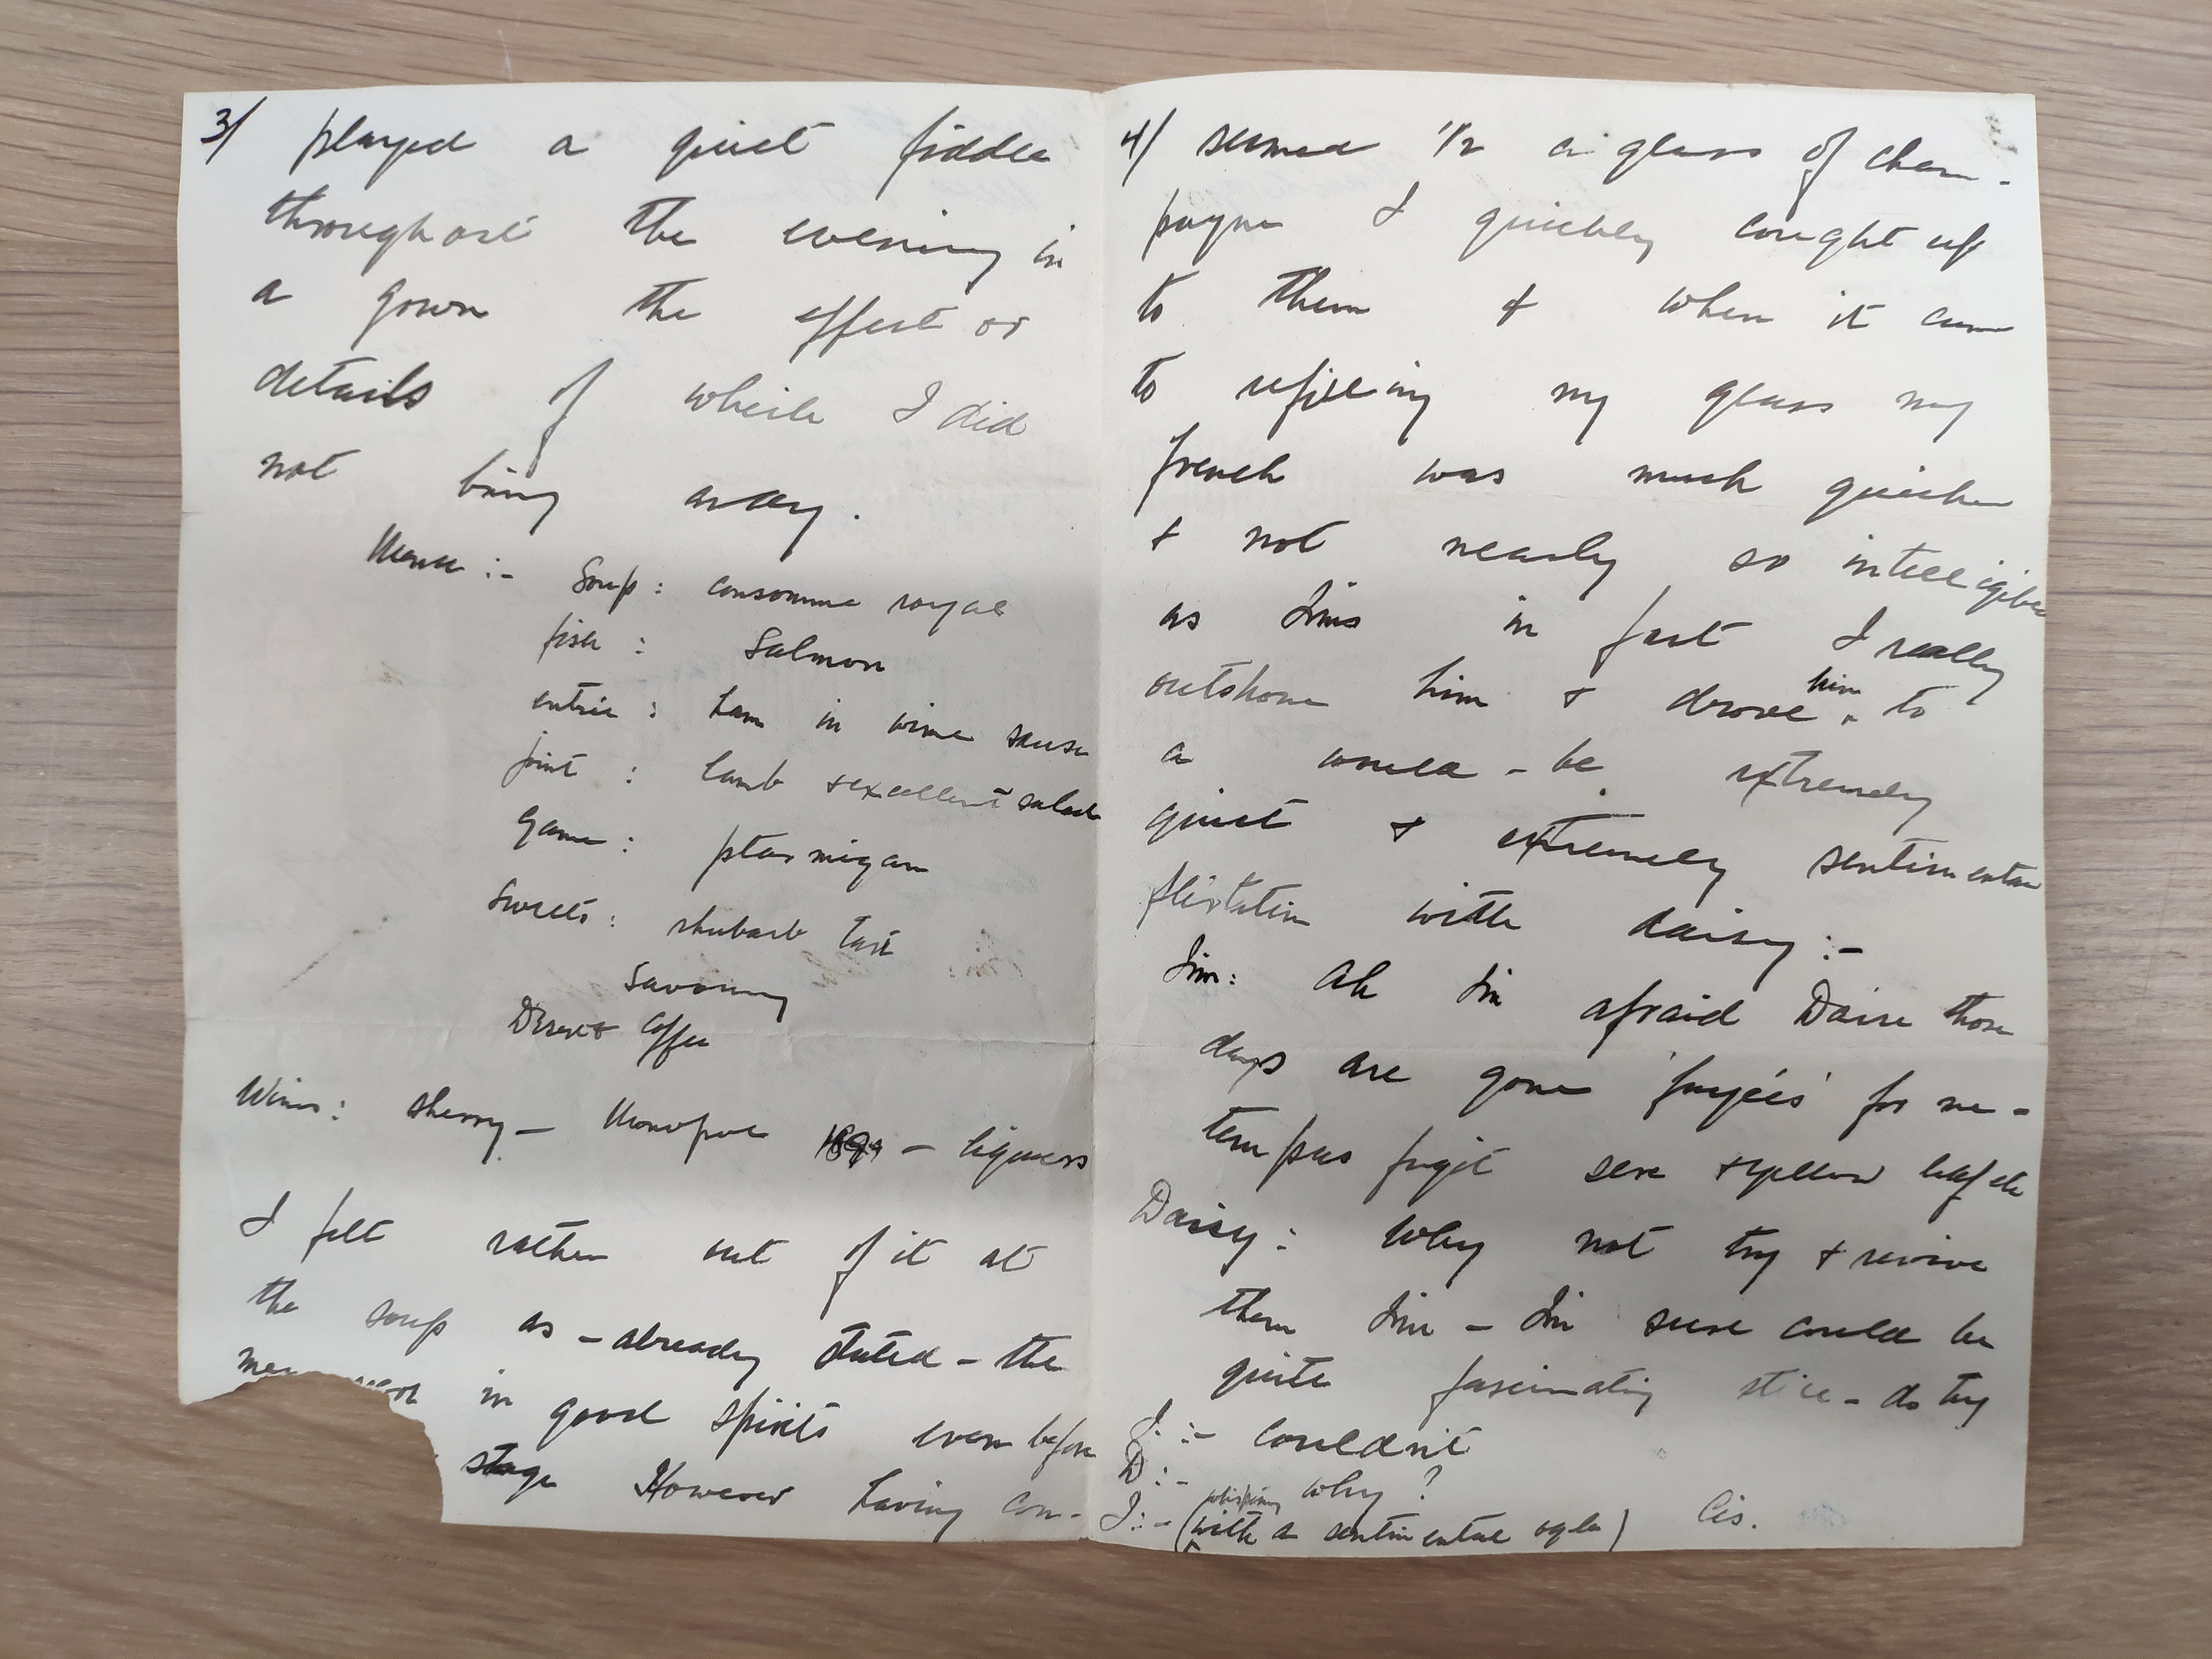 3/ played a quiet fiddle
throughout the evening in
a gown the effect or
details of which I did
not bring away.
Menu :- Soup : consomme royal
fish : Salmon
entrée : ham in wine sauce
joint : lamb & excellent salad
game : ptarmigan
Sweets : rhubarb tart
Savoury
Desert Coffee
Wines : sherry - Monopole 1894 - liqueurs
I felt rather out of it at
the soup as - already stated - the
men in good spirits even before
stage However having con-
4/ sumed 1/2 a glass of cham-
pagne I quickly caught up
to them & when it came
to refilling my glass my
french was much quicker
& not nearly so intelligible
as Jims in fact I really
outshone him & drove him to
a would-be extremely
quiet & extremely sentimental
flirtation with daisy :-
Jim: Ah I'm afraid Daise those
days are gone for me -
tempus fugit sere & yellow leaf etc
Daisy : Why not try & revive
them Jim - I'm sure could be
quite fascinating still - do try
J :- Couldn't
D :- Why ?
J :- (with a sentimental ogle) Cis.